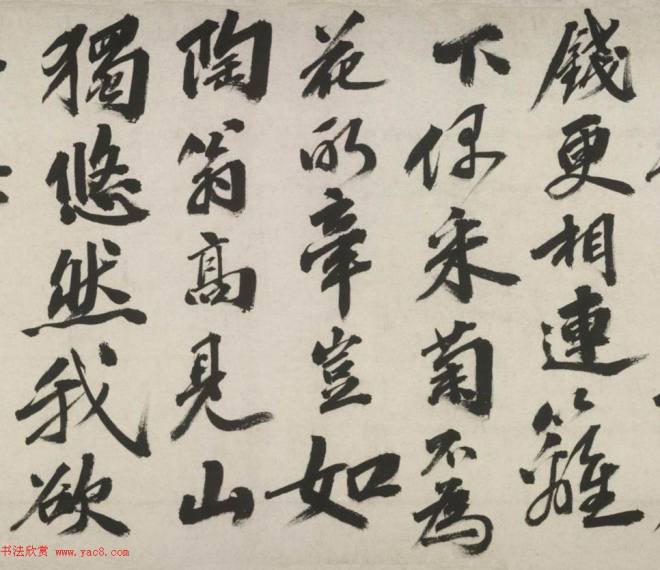 錢更相連籬
下偶采菊不為
花所牽豈如
陶翁高見山
獨悠然我欲
书法欣赏 www.yac8.com